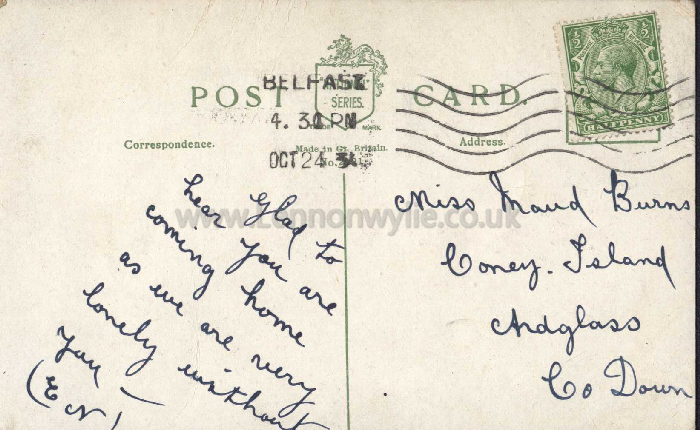 POST CARD.
SERIES.
BELFAST
4.30 PM
OCT 24
HALFPENNY
Correspondence.
Made in Gt. Britain.
Address.
www.Lennonwylie.co.uk
Glad to
hear you are
coming home
as we are very
lonely without
you —
(E N)
Miss Maud Burns
Coney. Island
Ardglass
Co Down